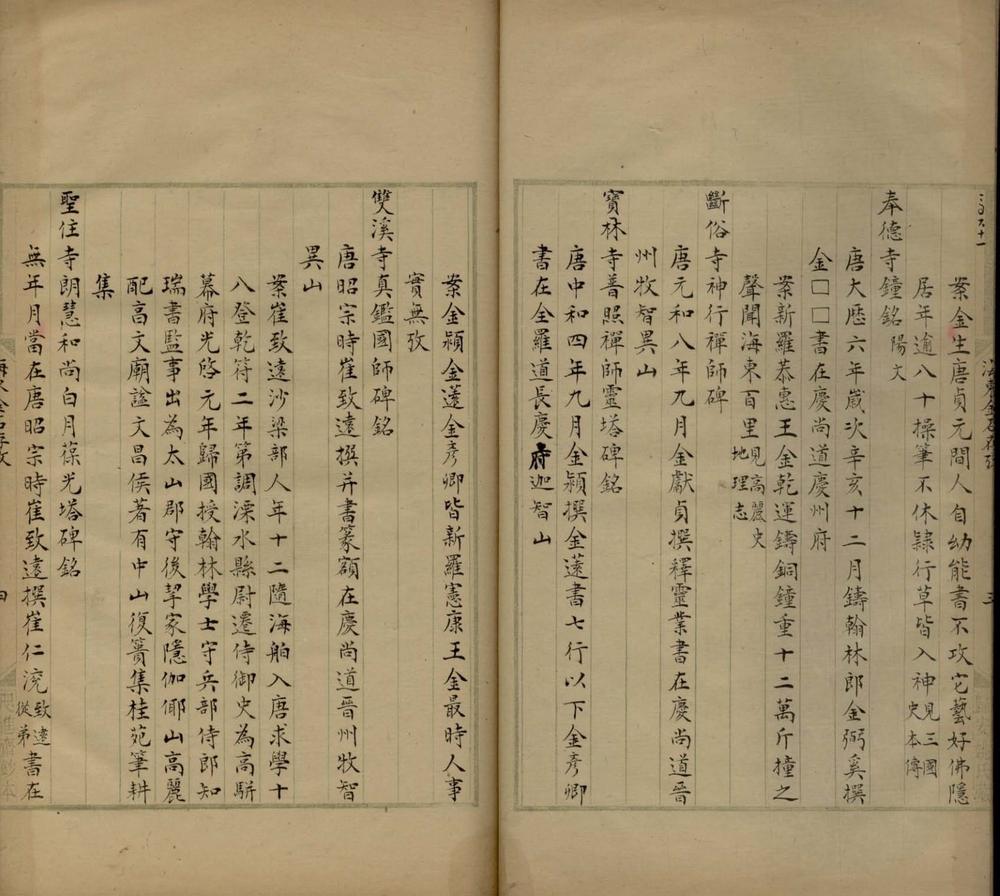 案金生唐貞元間人自幼能書不攻它藝好佛隱
居年逾八十操筆不休隸行草皆入神見三國史本傳
奉德寺鐘銘陽文
唐大歷六年歲次辛亥十二月鑄翰林郎金弼奚撰
金□□書在慶尚道慶州府
案新羅恭惠王金乾運鑄銅鐘重十二萬斤撞之
聲聞海東百里見高麗史地理志
斷俗寺神行禪師碑
唐元和八年九月金獻貞撰釋靈業書在慶尚道晉
州牧智異山
寶林寺普照禪師靈塔碑銘
唐中和四年九月金穎撰金薳書七行以下金彥卿
書在全羅道長慶府迦智山
案金穎金薳金彥卿皆新羅憲康王金最時人事
實無攷
雙溪寺真鑑國師碑銘
唐昭宗時崔致遠撰并書篆額在慶尚道晉州牧智
異山
案崔致遠沙梁部人年十二隨海舶入唐求學十
八登乾符二年第調溧水縣尉遷侍御史為高駢
幕府光啓元年歸國授翰林學士守兵部侍郎知
瑞書監事出為太山郡守後挈家隱伽倻山高麗
配高文廟諡文昌侯著有中山復簣集桂苑筆耕
集
聖住寺朗慧和尚白月葆光塔碑銘
無年月當在唐昭宗時崔致遠撰崔仁渷致遠從弟書在